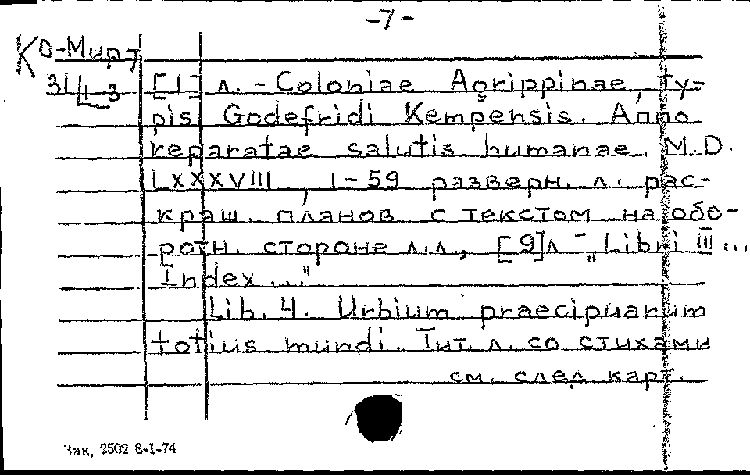 -7-
Ко-Мирт
3Ц-3
[1] л. - Coloniae Agrippinae, ty-
pis Godefridi Kempensis. Anno
reparatae salutis humanae. M.D.
LXXXVIII, 1-59 разверн. л. рас-
краш. планов с текстом на обо-
ротн. стороне л.л., [9]л - „Libri III...
Index..."
Lib. 4. Urbium praecipuarum
totius mundi. Тит. л. со стихами
см. след карт.
Зак, 2502 8-I-74